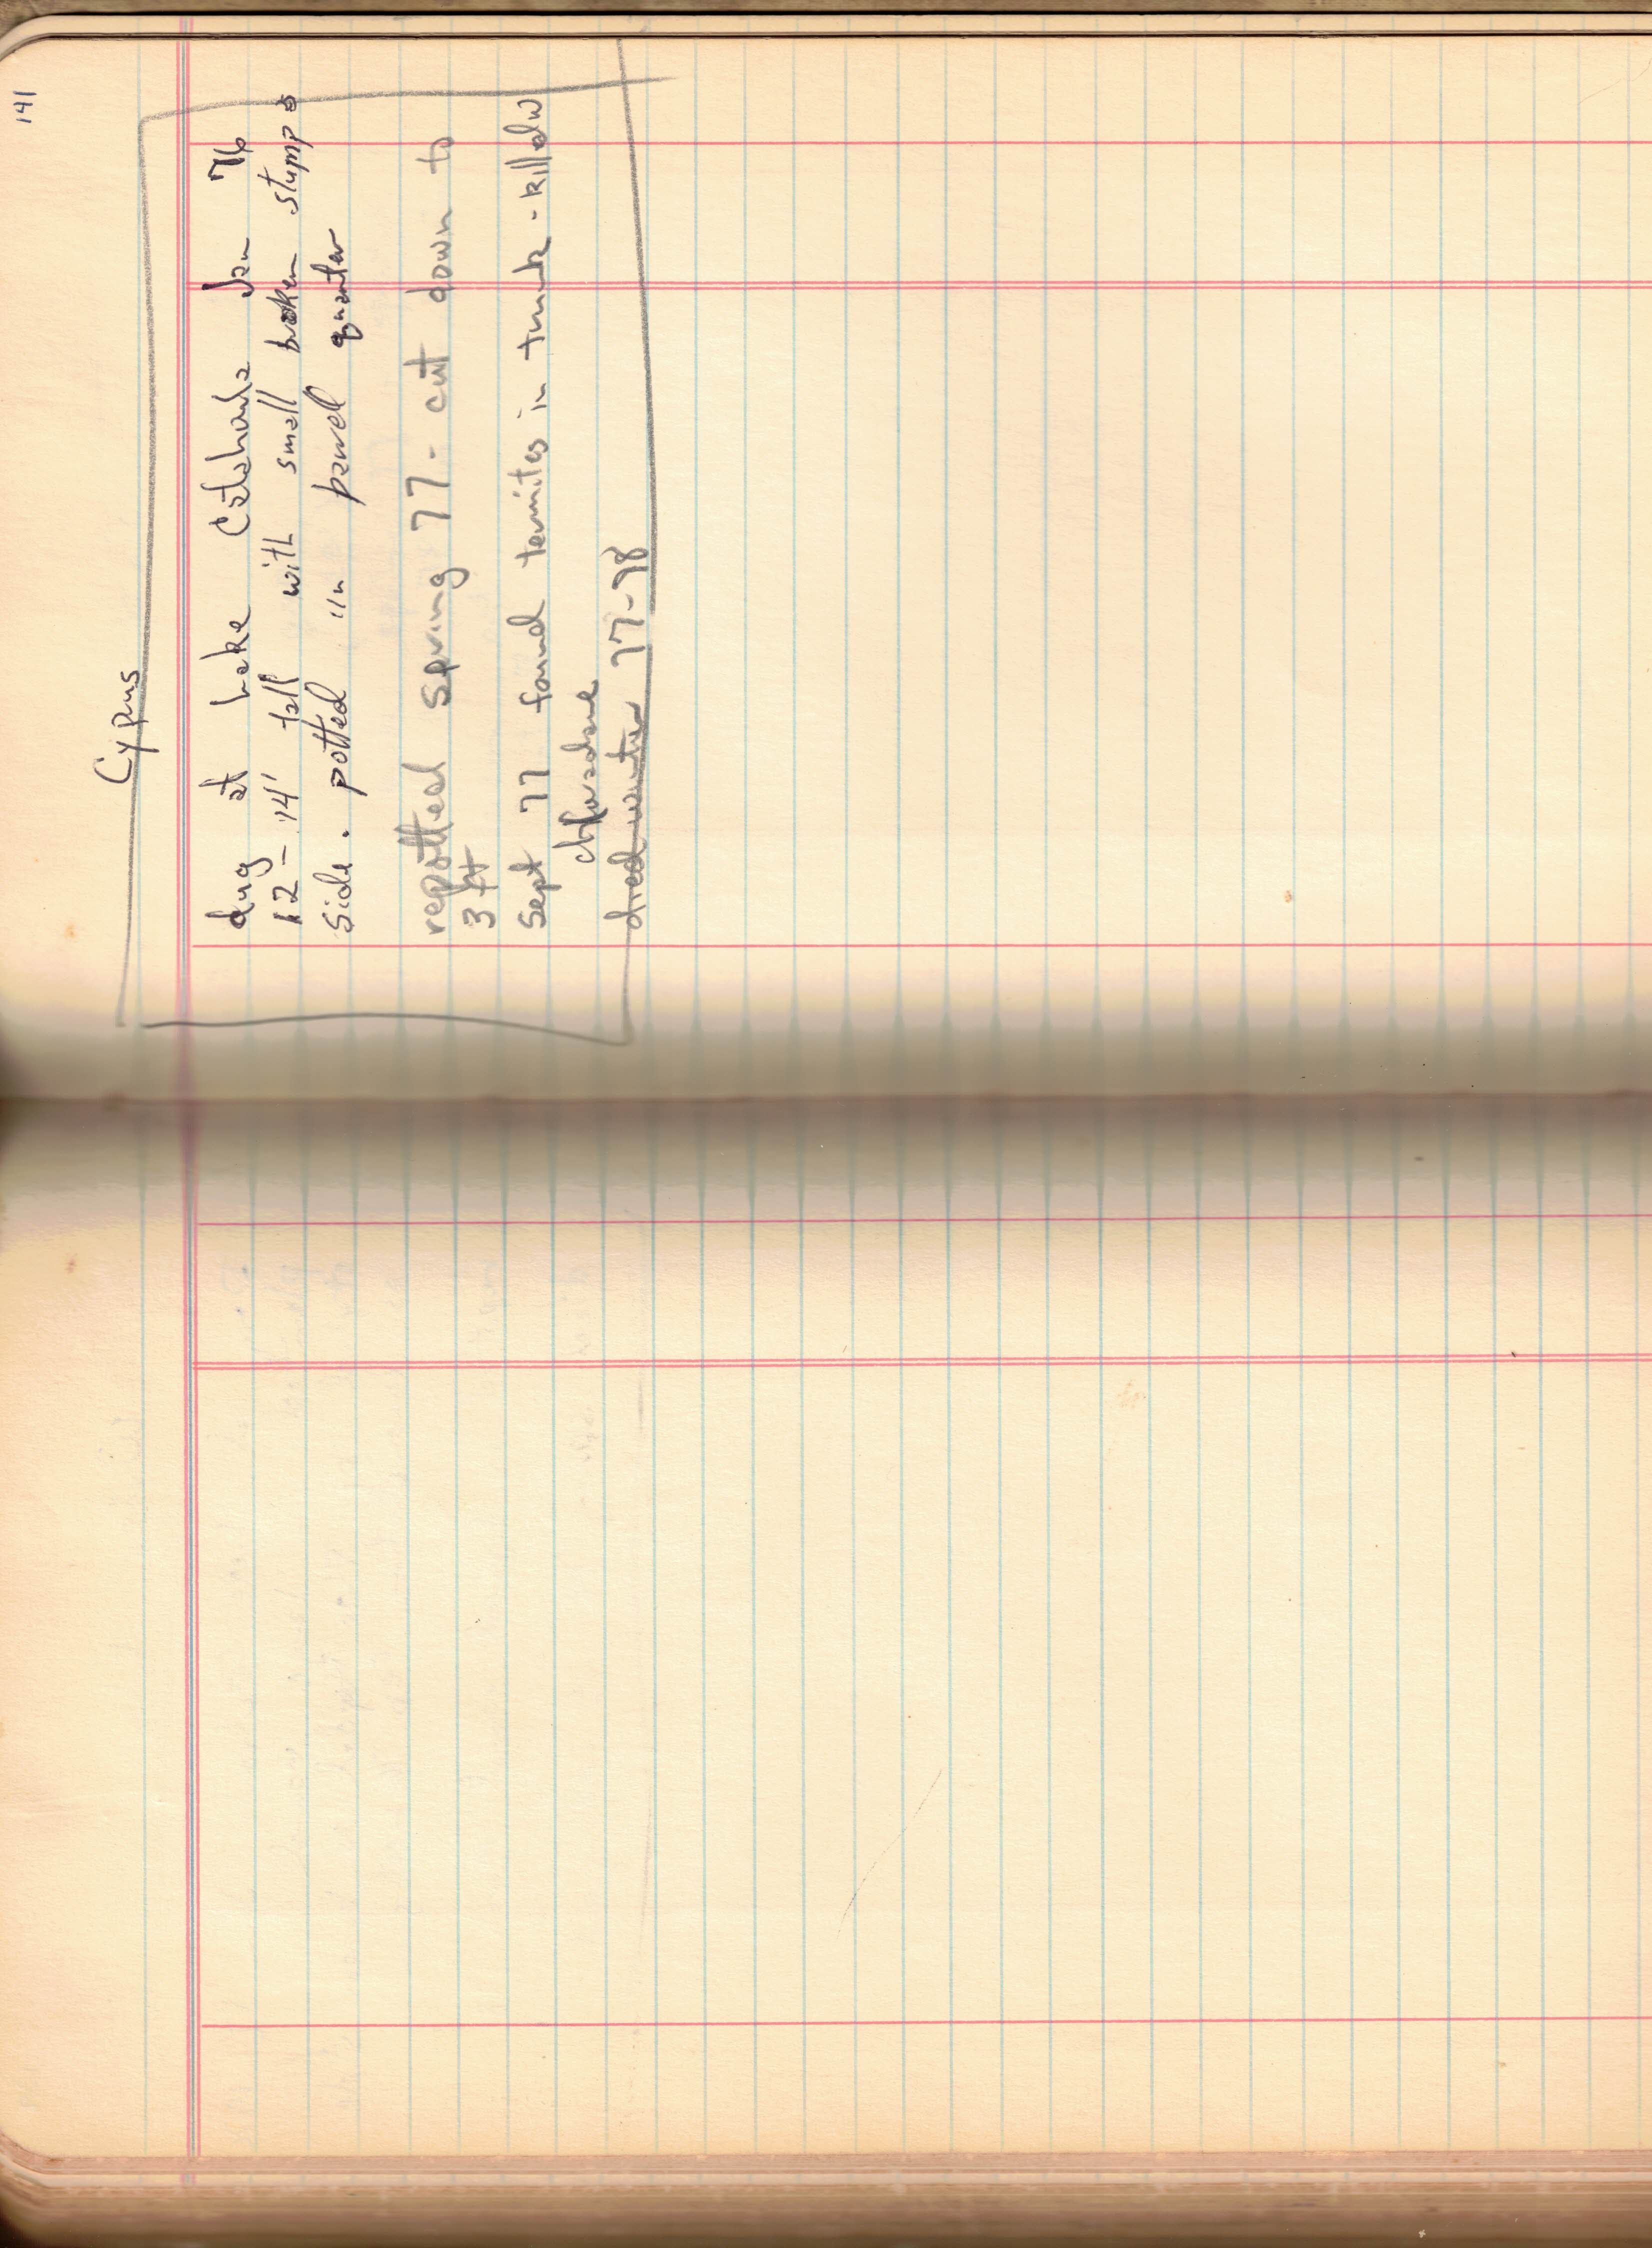 141
Cyprus
dug at Lake Catahoula Jan 76
12 - 14' tall with small broken stump @
side. potted in barrel quarter
repotted spring 77 - cut down to
3 ft
Sept 77 found termites in trunk - killed w
chloradane
died winter 77-78